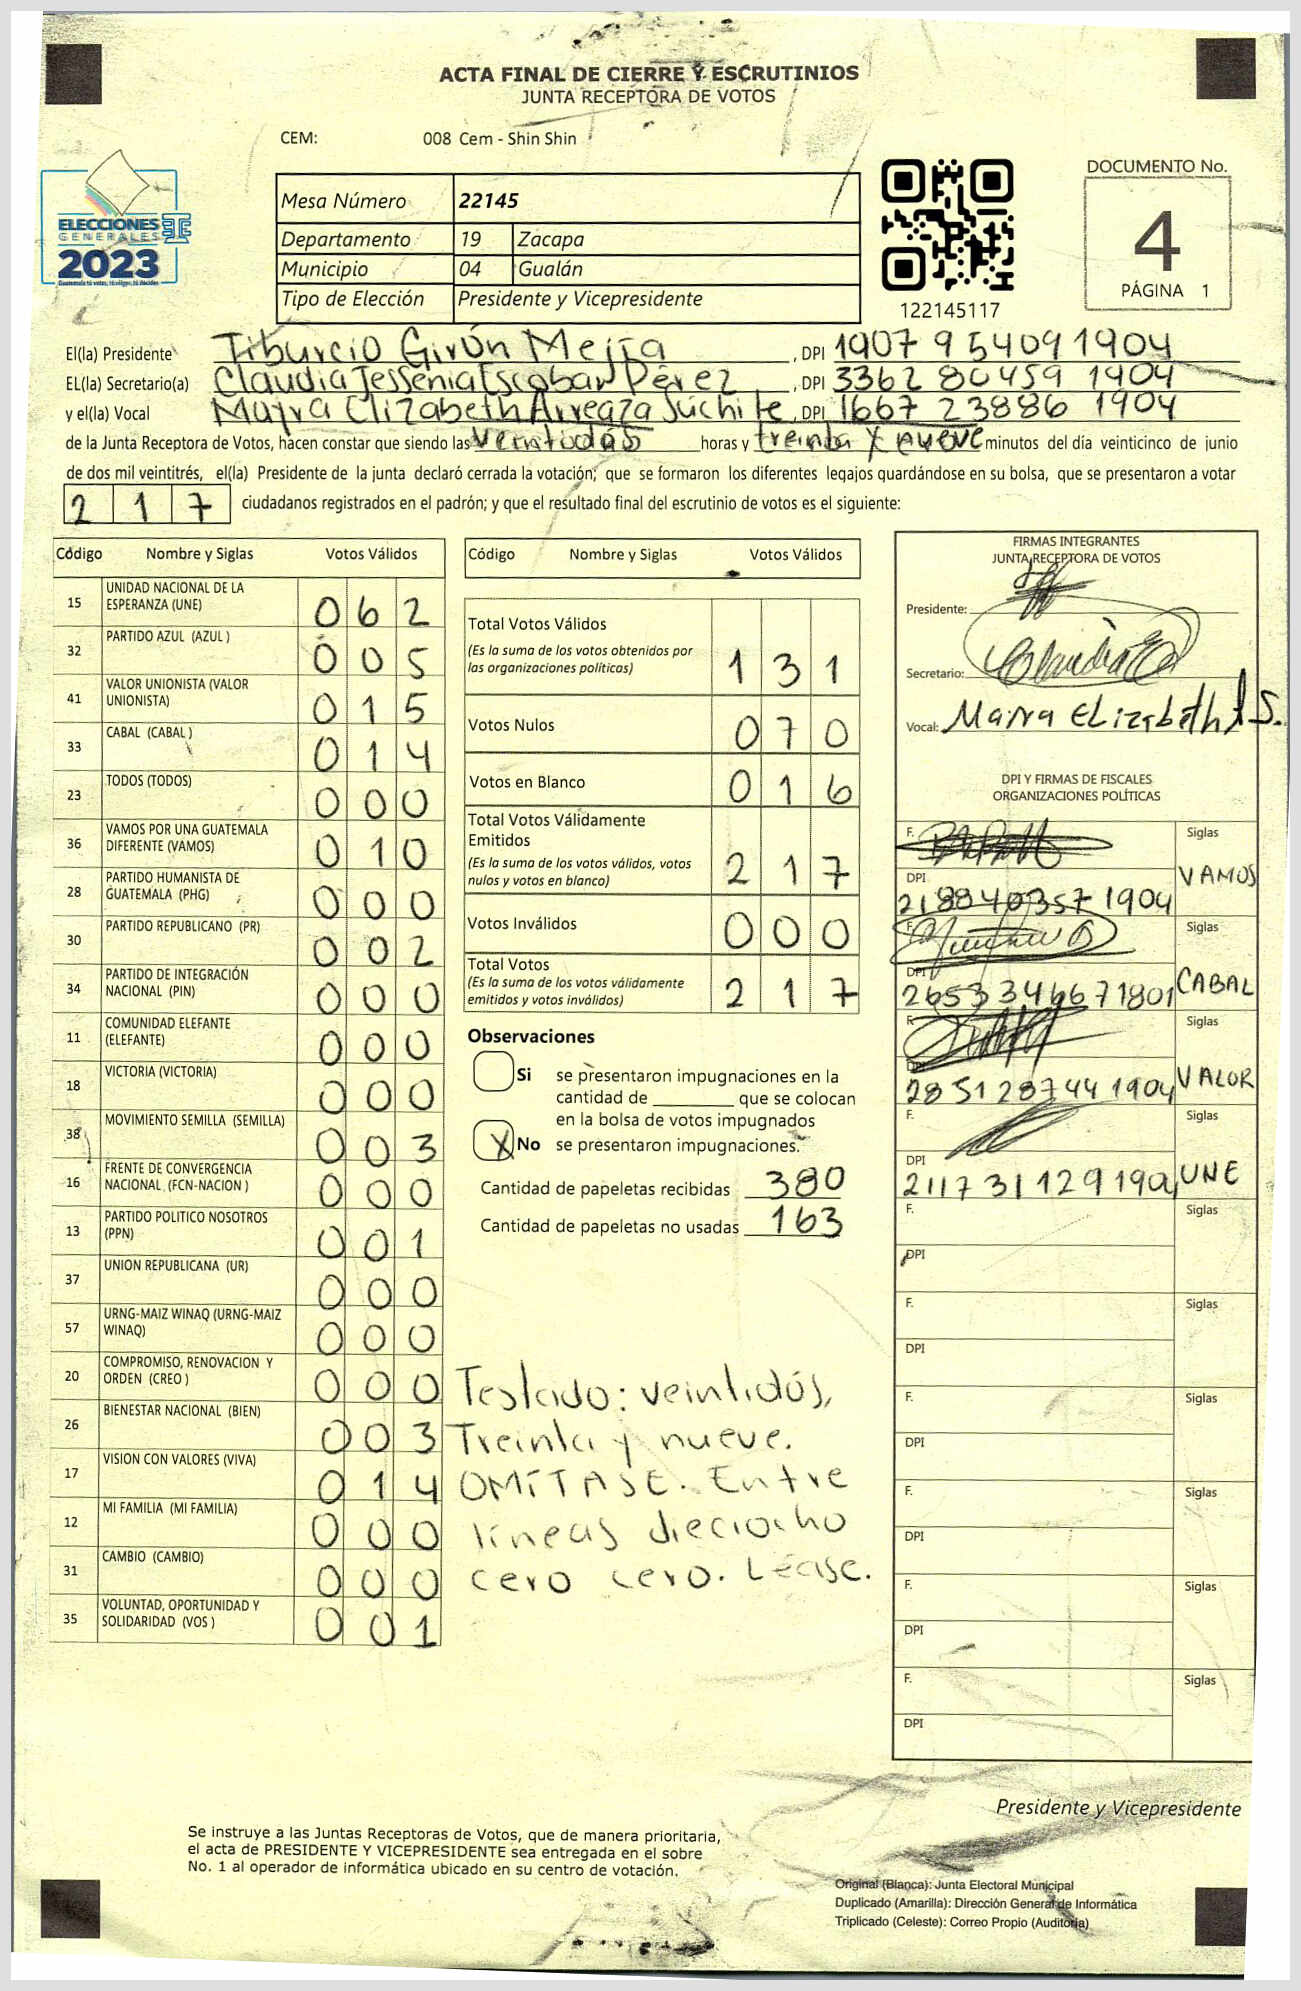 ACTA FINAL DE CIERRE Y ESCRUTINIOS
JUNTA RECEPTORA DE VOTOS
CEM: 008 Cem - Shin Shin
DOCUMENTO No.
4
PÁGINA 1
ELECCIONES
GENERALES
2023
Guatemala tú votas, tú eliges, tú decides
Mesa Número 22145
Departamento 19 Zacapa
Municipio 04 Gualán
Tipo de Elección Presidente y Vicepresidente
122145117
El(la) Presidente Tiburcio Girón Mejía , DPI 1907 95409 1904
EL(la) Secretario(a) Claudia Jessenia Escobar Pérez , DPI 3362 80459 1904
y el(la) Vocal Mayra Elizabeth Arreaza Súchite , DPI 1667 23886 1904
de la Junta Receptora de Votos, hacen constar que siendo las veintidós horas y treinta y nueve minutos del día veinticinco de junio
de dos mil veintitrés, el(la) Presidente de la junta declaró cerrada la votación; que se formaron los diferentes legajos quardándose en su bolsa, que se presentaron a votar
2 1 7 ciudadanos registrados en el padrón; y que el resultado final del escrutinio de votos es el siguiente:
Código Nombre y Siglas Votos Válidos
15 UNIDAD NACIONAL DE LA ESPERANZA (UNE) 0 6 2
32 PARTIDO AZUL (AZUL ) 0 0 5
41 VALOR UNIONISTA (VALOR UNIONISTA) 0 1 5
33 CABAL (CABAL ) 0 1 4
23 TODOS (TODOS) 0 0 0
36 VAMOS POR UNA GUATEMALA DIFERENTE (VAMOS) 0 1 0
28 PARTIDO HUMANISTA DE GUATEMALA (PHG) 0 0 0
30 PARTIDO REPUBLICANO (PR) 0 0 2
34 PARTIDO DE INTEGRACIÓN NACIONAL (PIN) 0 0 0
11 COMUNIDAD ELEFANTE (ELEFANTE) 0 0 0
18 VICTORIA (VICTORIA) 0 0 0
38 MOVIMIENTO SEMILLA (SEMILLA) 0 0 3
16 FRENTE DE CONVERGENCIA NACIONAL (FCN-NACION ) 0 0 0
13 PARTIDO POLITICO NOSOTROS (PPN) 0 0 1
37 UNION REPUBLICANA (UR) 0 0 0
57 URNG-MAIZ WINAQ (URNG-MAIZ WINAQ) 0 0 0
20 COMPROMISO, RENOVACION Y ORDEN (CREO ) 0 0 0
26 BIENESTAR NACIONAL (BIEN) 0 0 3
17 VISION CON VALORES (VIVA) 0 1 4
12 MI FAMILIA (MI FAMILIA) 0 0 0
31 CAMBIO (CAMBIO) 0 0 0
35 VOLUNTAD, OPORTUNIDAD Y SOLIDARIDAD (VOS ) 0 0 1
Código Nombre y Siglas Votos Válidos
Total Votos Válidos
(Es la suma de los votos obtenidos por
las organizaciones políticas) 1 3 1
Votos Nulos 0 7 0
Votos en Blanco 0 1 6
Total Votos Válidamente
Emitidos
(Es la suma de los votos válidos, votos
nulos y votos en blanco) 2 1 7
Votos Inválidos 0 0 0
Total Votos
(Es la suma de los votos válidamente
emitidos y votos inválidos) 2 1 7
Observaciones
Si se presentaron impugnaciones en la
cantidad de ________ que se colocan
en la bolsa de votos impugnados
X No se presentaron impugnaciones.
Cantidad de papeletas recibidas 380
Cantidad de papeletas no usadas 163
Testado: veintidós,
Treinta y nueve.
OMÍTASE. Entre
líneas dieciocho
cero cero. Léase.
FIRMAS INTEGRANTES
JUNTA RECEPTORA DE VOTOS
Presidente:
Secretario:
Vocal: Mayra Elizabeth A S.
DPI Y FIRMAS DE FISCALES
ORGANIZACIONES POLÍTICAS
F. Siglas
DPI VAMOS
2188 40357 1904
F. Siglas
DPI CABAL
2653 34667 1801
F. Siglas
DPI VALOR
2851 28744 1904
F. Siglas
DPI UNE
2117 31129 1904
F. Siglas
DPI
F. Siglas
DPI
F. Siglas
DPI
F. Siglas
DPI
F. Siglas
DPI
F. Siglas
DPI
Presidente y Vicepresidente
Se instruye a las Juntas Receptoras de Votos, que de manera prioritaria,
el acta de PRESIDENTE Y VICEPRESIDENTE sea entregada en el sobre
No. 1 al operador de informática ubicado en su centro de votación.
Original (Blanca): Junta Electoral Municipal
Duplicado (Amarilla): Dirección General de Informática
Triplicado (Celeste): Correo Propio (Auditoría)